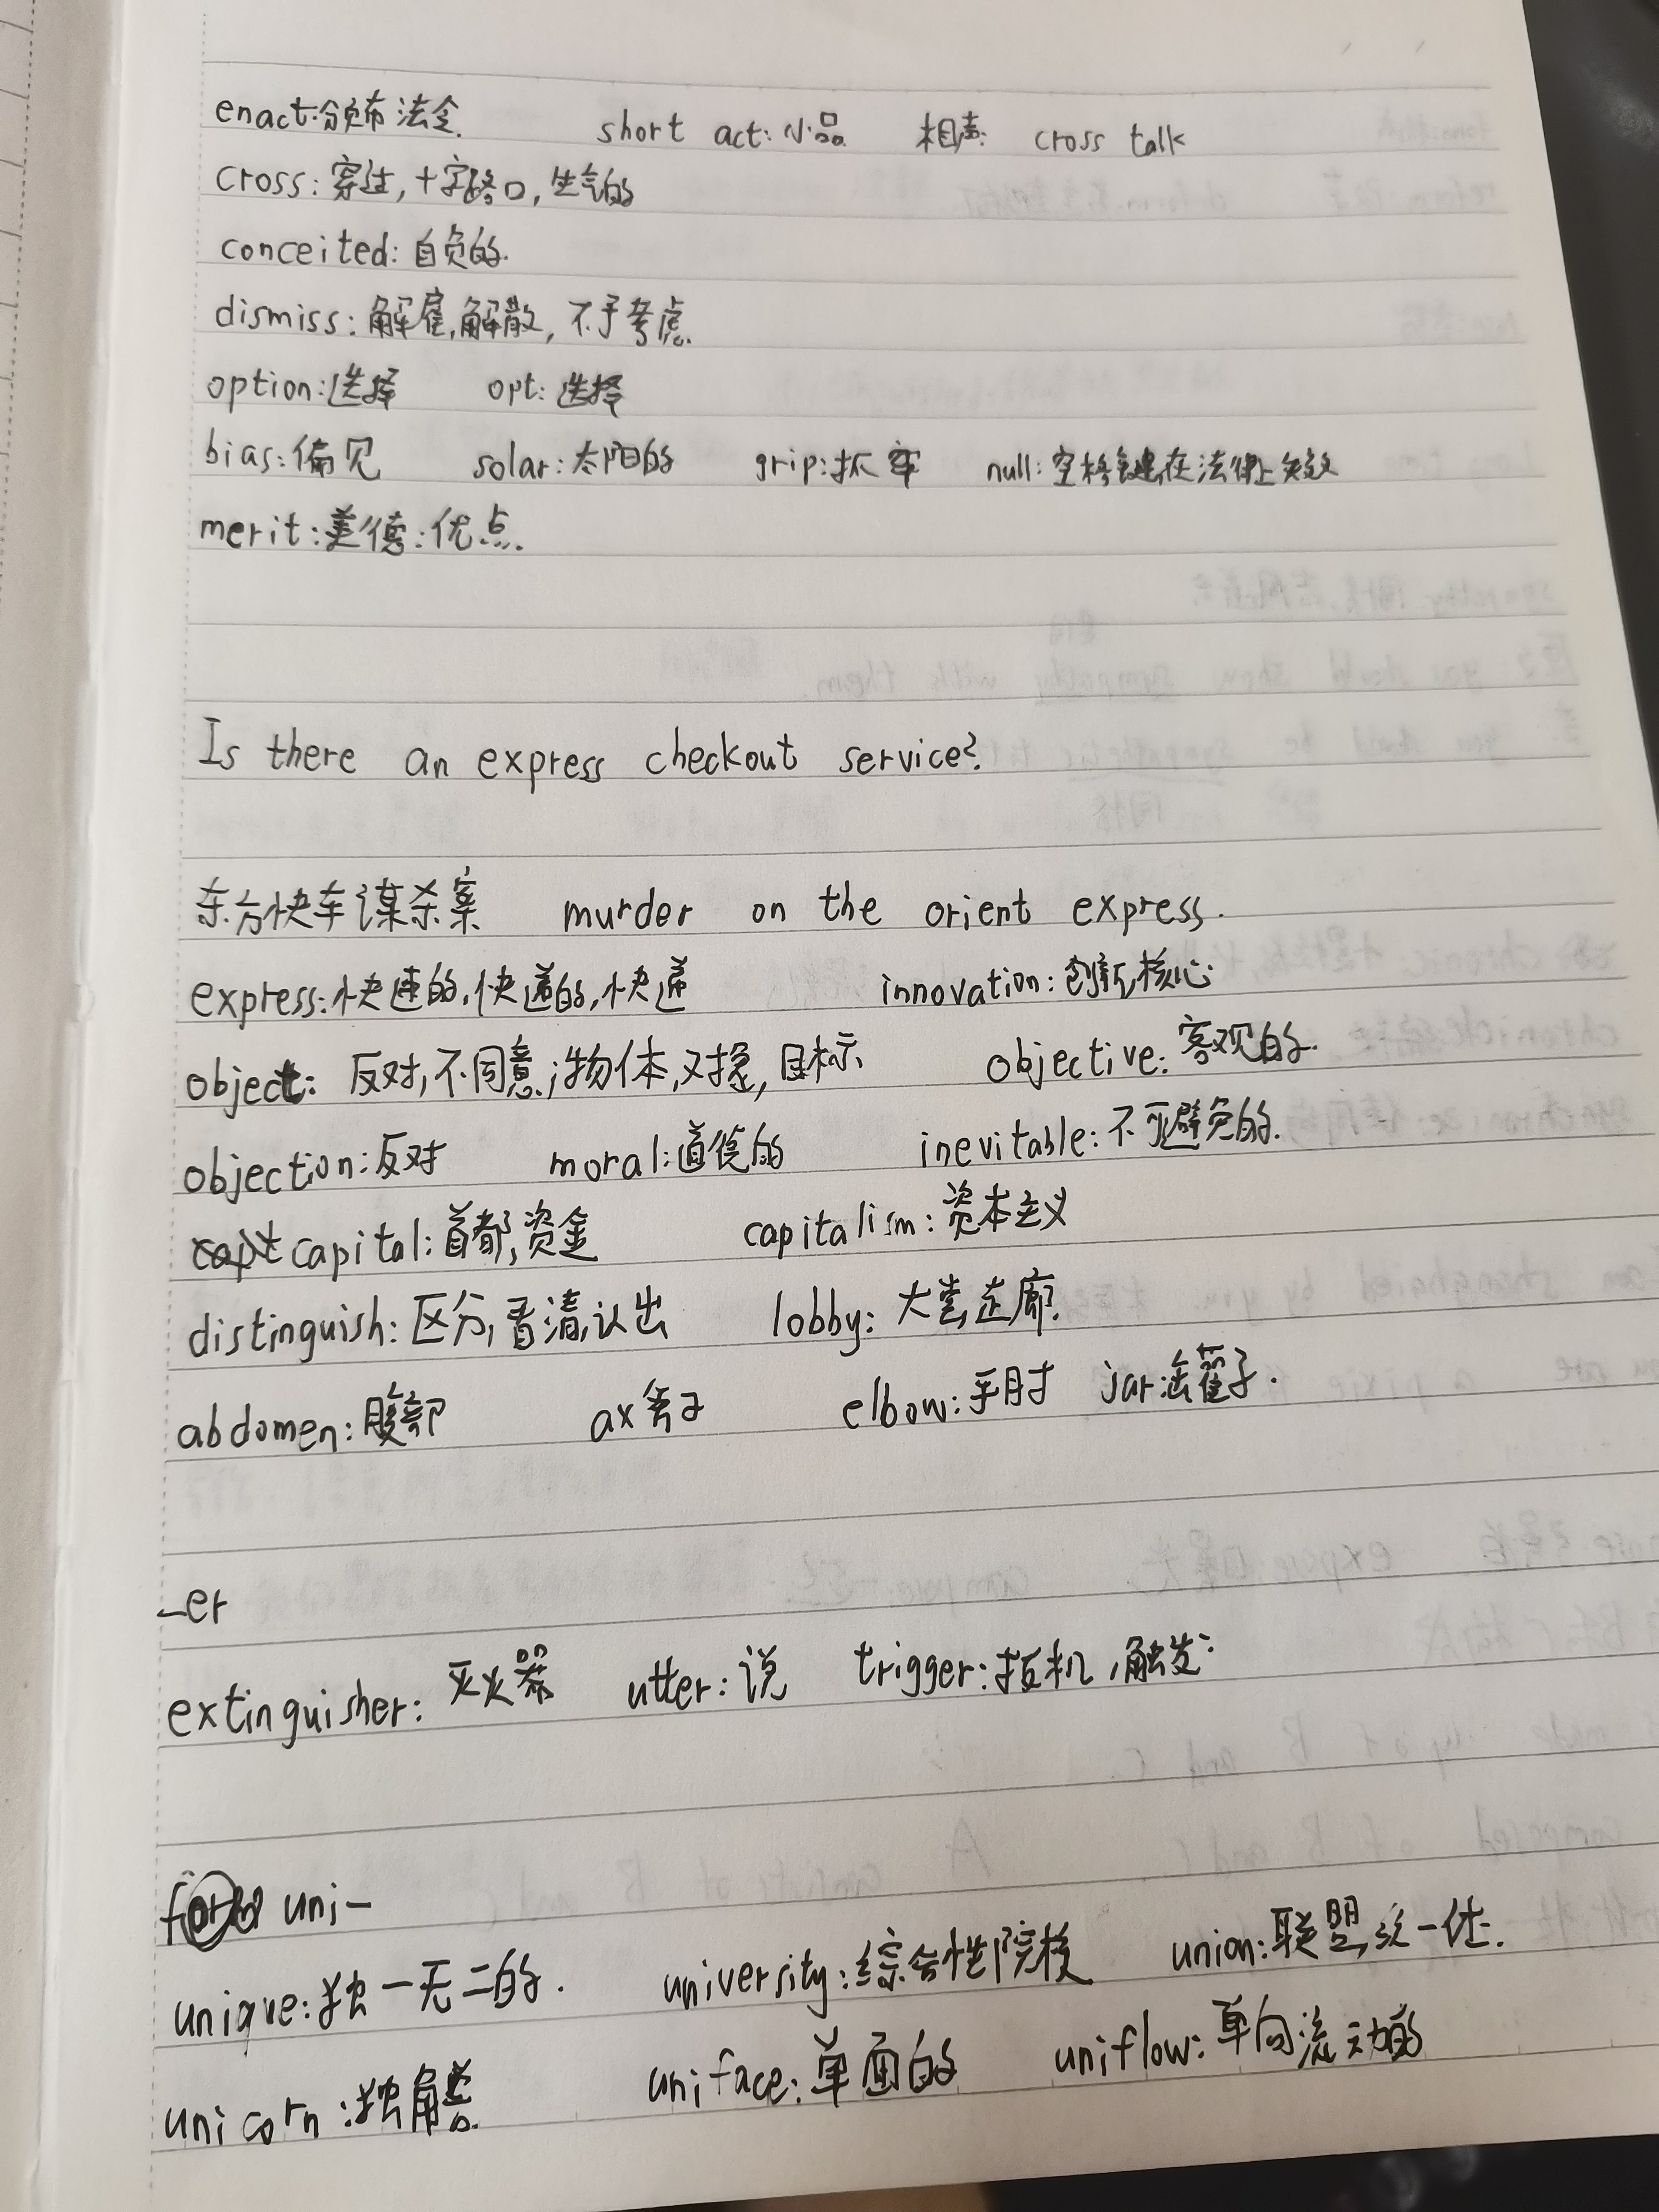 enact:颁布法令. short act:小品 相声: cross talk
cross:穿过,十字路口,生气的
conceited:自负的.
dismiss:解雇,解散,不予考虑.
option:选择 opt:选择
bias:偏见 solar:太阳的 grip:抓牢 null:空格键,在法律上失效
merit:美德:优点.
Is there an express checkout service?
东方快车谋杀案 murder on the orient express.
express:快速的,快递的,快递 innovation:创新,核心
object: 反对,不同意;物体,对象,目标 objective:客观的.
objection:反对 moral:道德的 inevitable:不可避免的.
capital:首都,资金 capitalism:资本主义
distinguish:区分,看清,认出 lobby:大堂,走廊.
abdomen:腹部 ax斧子 elbow:手肘 jar:罐子.
-er
extinguisher:灭火器 utter:说 trigger:扳机,触发
uni-
unique:独一无二的. university:综合性院校 union:联盟,统一体.
unicorn:独角兽. uniface:单面的 uniflow:单向流动的